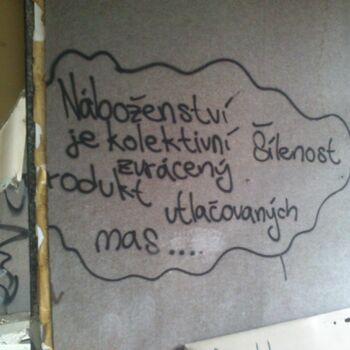 Náboženství
je kolektivní šílenost
zvrácený
rodukt utlačovaných
mas....